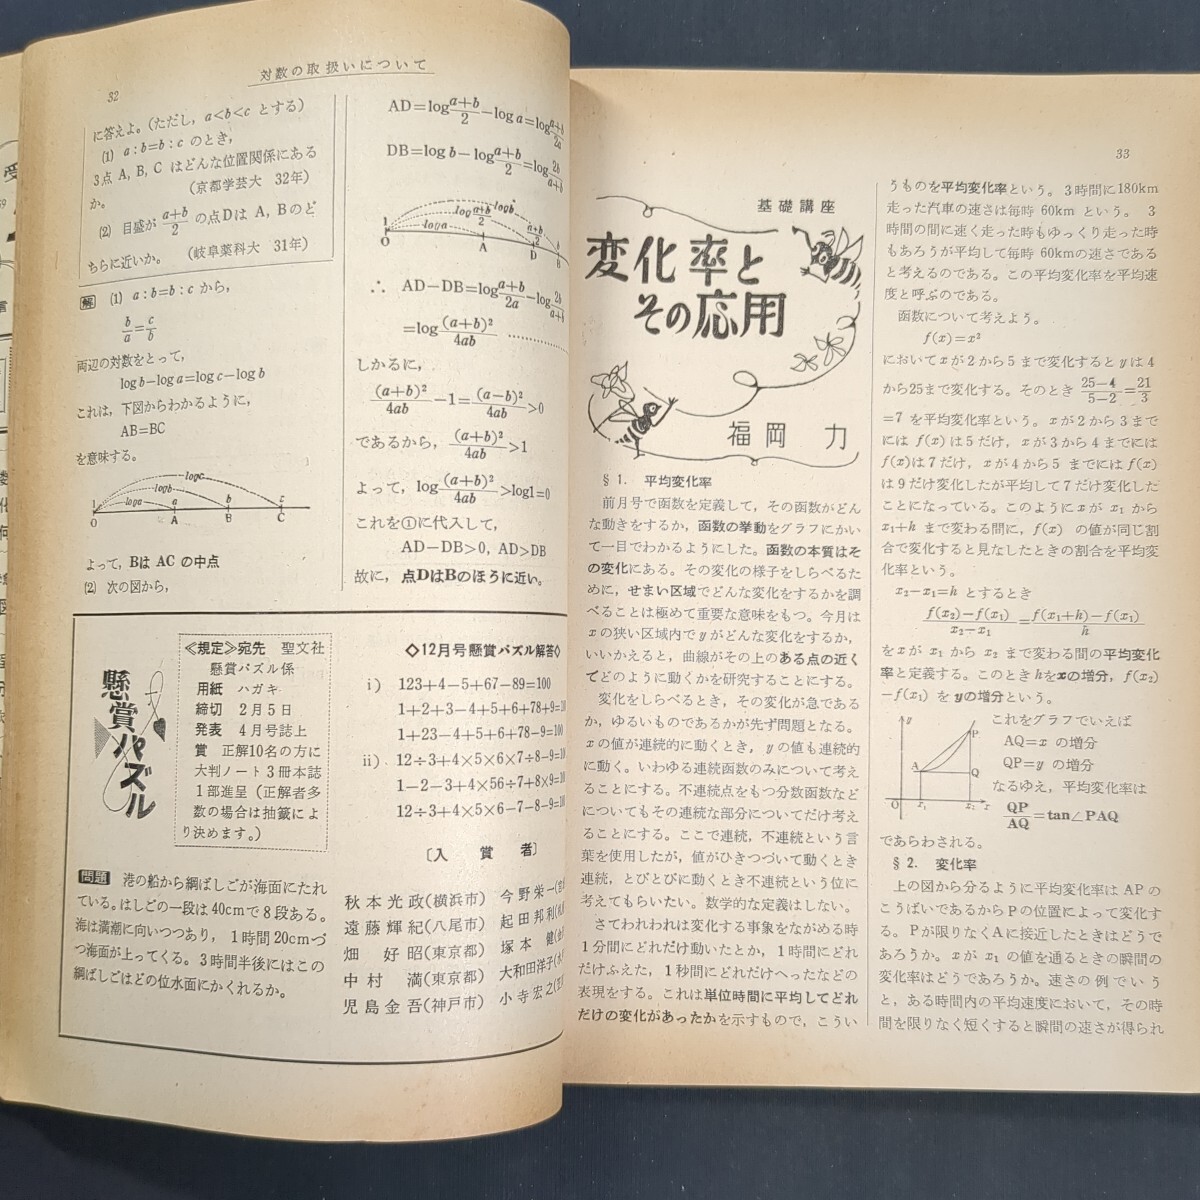 対数の取扱いについて
32
に答えよ。(ただし，a<b<c とする)
(1) a：b=b：c のとき，
3点 A, B, C はどんな位置関係にある
か。 (京都学芸大 32年)
(2) 目盛が (a+b)/2 の点Dは A, Bのど
ちらに近いか。 (岐阜薬科大 31年)
解 (1) a：b=b：c から，
b/a=c/b
両辺の対数をとって，
log b−log a=log c−log b
これは，下図からわかるように，
AB=BC
を意味する。
logc
logb
loga
1 a b c
O A B C
よって，Bは AC の中点
(2) 次の図から，
AD=log (a+b)/2−log a=log (a+b)/2a
DB=log b−log (a+b)/2=log 2b/(a+b)
logb
log (a+b)/2
loga
1 a (a+b)/2 b
O A D B
∴ AD−DB=log (a+b)/2a−log 2b/(a+b)
=log (a+b)²/4ab ……………
しかるに，
(a+b)²/4ab−1=(a−b)²/4ab>0
であるから，(a+b)²/4ab>1
よって，log (a+b)²/4ab>log1=0
これを①に代入して，
AD−DB>0, AD>DB
故に，点DはBのほうに近い。
懸賞パズル
≪規定≫宛先 聖文社
懸賞パズル係
用紙 ハガキ
締切 2月5日
発表 4月号誌上
賞 正解10名の方に
大判ノート3冊本誌
1部進呈(正解者多
数の場合は抽籤によ
り決めます。)
問題 港の船から綱ばしごが海面にたれ
ている。はしごの一段は40cmで8段ある。
海は満潮に向いつつあり，1時間20cmづ
つ海面が上ってくる。3時間半後にはこの
綱ばしごはどの位水面にかくれるか。
◇12月号懸賞パズル解答◇
i) 123+4−5+67−89=100
1+2+3−4+5+6+78+9=10
1+23−4+5+6+78−9=100
ii) 12÷3+4×5×6×7÷8−9=10
1−2−3+4×56÷7+8×9=10
12÷3+4×5×6−7−8−9=10
〔入賞者〕
秋本光政(横浜市) 今野栄一
遠藤輝紀(八尾市) 起田邦利
畑 好昭(東京都) 塚本 健
中村 満(東京都) 大和田洋子
児島金吾(神戸市) 小寺宏之
33
基礎講座
変化率と
その応用
福岡 力
§1. 平均変化率
前月号で函数を定義して，その函数がどん
な動きをするか，函数の挙動をグラフにかい
て一目でわかるようにした。函数の本質はそ
の変化にある。その変化の様子をしらべるた
めに，せまい区域でどんな変化をするかを調
べることは極めて重要な意味をもつ。今月は
xの狭い区域内でyがどんな変化をするか，
いいかえると，曲線がその上のある点の近く
でどのように動くかを研究することにする。
変化をしらべるとき，その変化が急である
か，ゆるいものであるかが先ず問題となる。
xの値が連続的に動くとき，yの値も連続的
に動く。いわゆる連続函数のみについて考え
ることにする。不連続点をもつ分数函数など
についてもその連続な部分についてだけ考え
ることにする。ここで連続，不連続という言
葉を使用したが，値がひきつづいて動くとき
連続，とびとびに動くとき不連続という位に
考えてもらいたい。数学的な定義はしない。
さてわれわれは変化する事象をながめる時
1分間にどれだけ動いたとか，1時間にどれ
だけふえた，1秒間にどれだけへったなどの
表現をする。これは単位時間に平均してどれ
だけの変化があったかを示すもので，こうい
うものを平均変化率という。3時間に180km
走った汽車の速さは毎時 60km という。3
時間の間に速く走った時もゆっくり走った時
もあろうが平均して毎時 60kmの速さである
と考えるのである。この平均変化率を平均速
度と呼ぶのである。
函数について考えよう。
f(x)=x²
においてxが2から5まで変化するとyは4
から25まで変化する。そのとき (25−4)/(5−2)=21/3
=7 を平均変化率という。xが2から3まで
には f(x) は5だけ，xが3から4までには
f(x)は7だけ，xが4から5 までにはf(x)
は9だけ変化したが平均して7だけ変化した
ことになっている。このようにxが x₁ から
x₁+h まで変わる間に，f(x) の値が同じ割
合で変化すると見なしたときの割合を平均変
化率という。
x₂−x₁=h とするとき
(f(x₂)−f(x₁))/(x₂−x₁)=(f(x₁+h)−f(x₁))/h
をxが x₁ から x₂ まで変わる間の平均変化
率と定義する。このときhをxの増分，f(x₂)
−f(x₁) を yの増分という。
y
P
A
Q
O x₁ x₂ x
これをグラフでいえば
AQ=x の増分
QP=y の増分
なるゆえ，平均変化率は
QP/AQ=tan∠PAQ
であらわされる。
§2. 変化率
上の図から分るように平均変化率は APの
こうばいであるからPの位置によって変化す
る。Pが限りなくAに接近したときはどうで
あろうか。xが x₁ の値を通るときの瞬間の
変化率はどうであろうか。速さの例でいう
と，ある時間内の平均速度において，その時
間を限りなく短くすると瞬間の速さが得られ